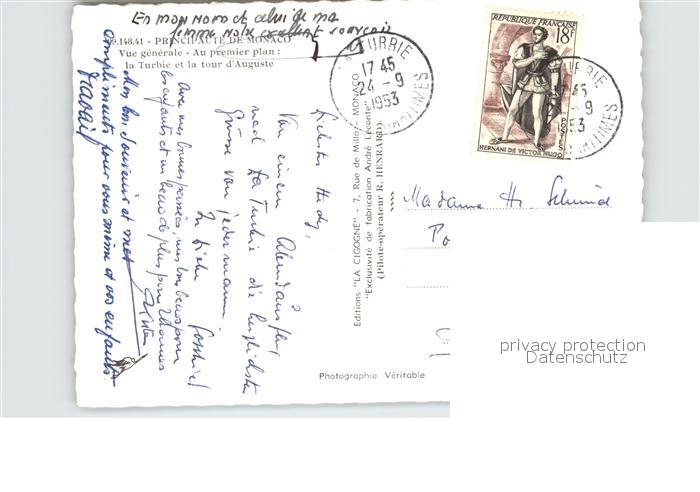 En mon nom et celui de ma
femme nos excellent souvenir
148.41 - PRINCIPAUTÉ DE MONACO
Vue générale - Au premier plan :
la Turbie et la tour d'Auguste
Liebste Hedy,
Von einem Abendausflug
nach La Turbie die herzlichsten
Grüsse von jedermann.
In Liebe
Avec mes bonnes pensées, mes bons baisers pour
les enfants et un beau de plus pour Thomas
Mon bon souvenir et mes
compliments pour vous même et vos enfants
Editions "LA CIGOGNE" - 7, Rue de Millo - MONACO
"Exclusivité de fabrication André Leconte"
(Pilote-opérateur R. HENRARD)
Photographie Véritable
TURBIE
17 45
24 - 9
1953
MARITIMES
REPUBLIQUE FRANÇAISE
18F
POSTES
HERNANI DE VICTOR HUGO
TURBIE
17 45
- 9
1953
MARITIMES
Madame H. Schmid
privacy protection
Datenschutz